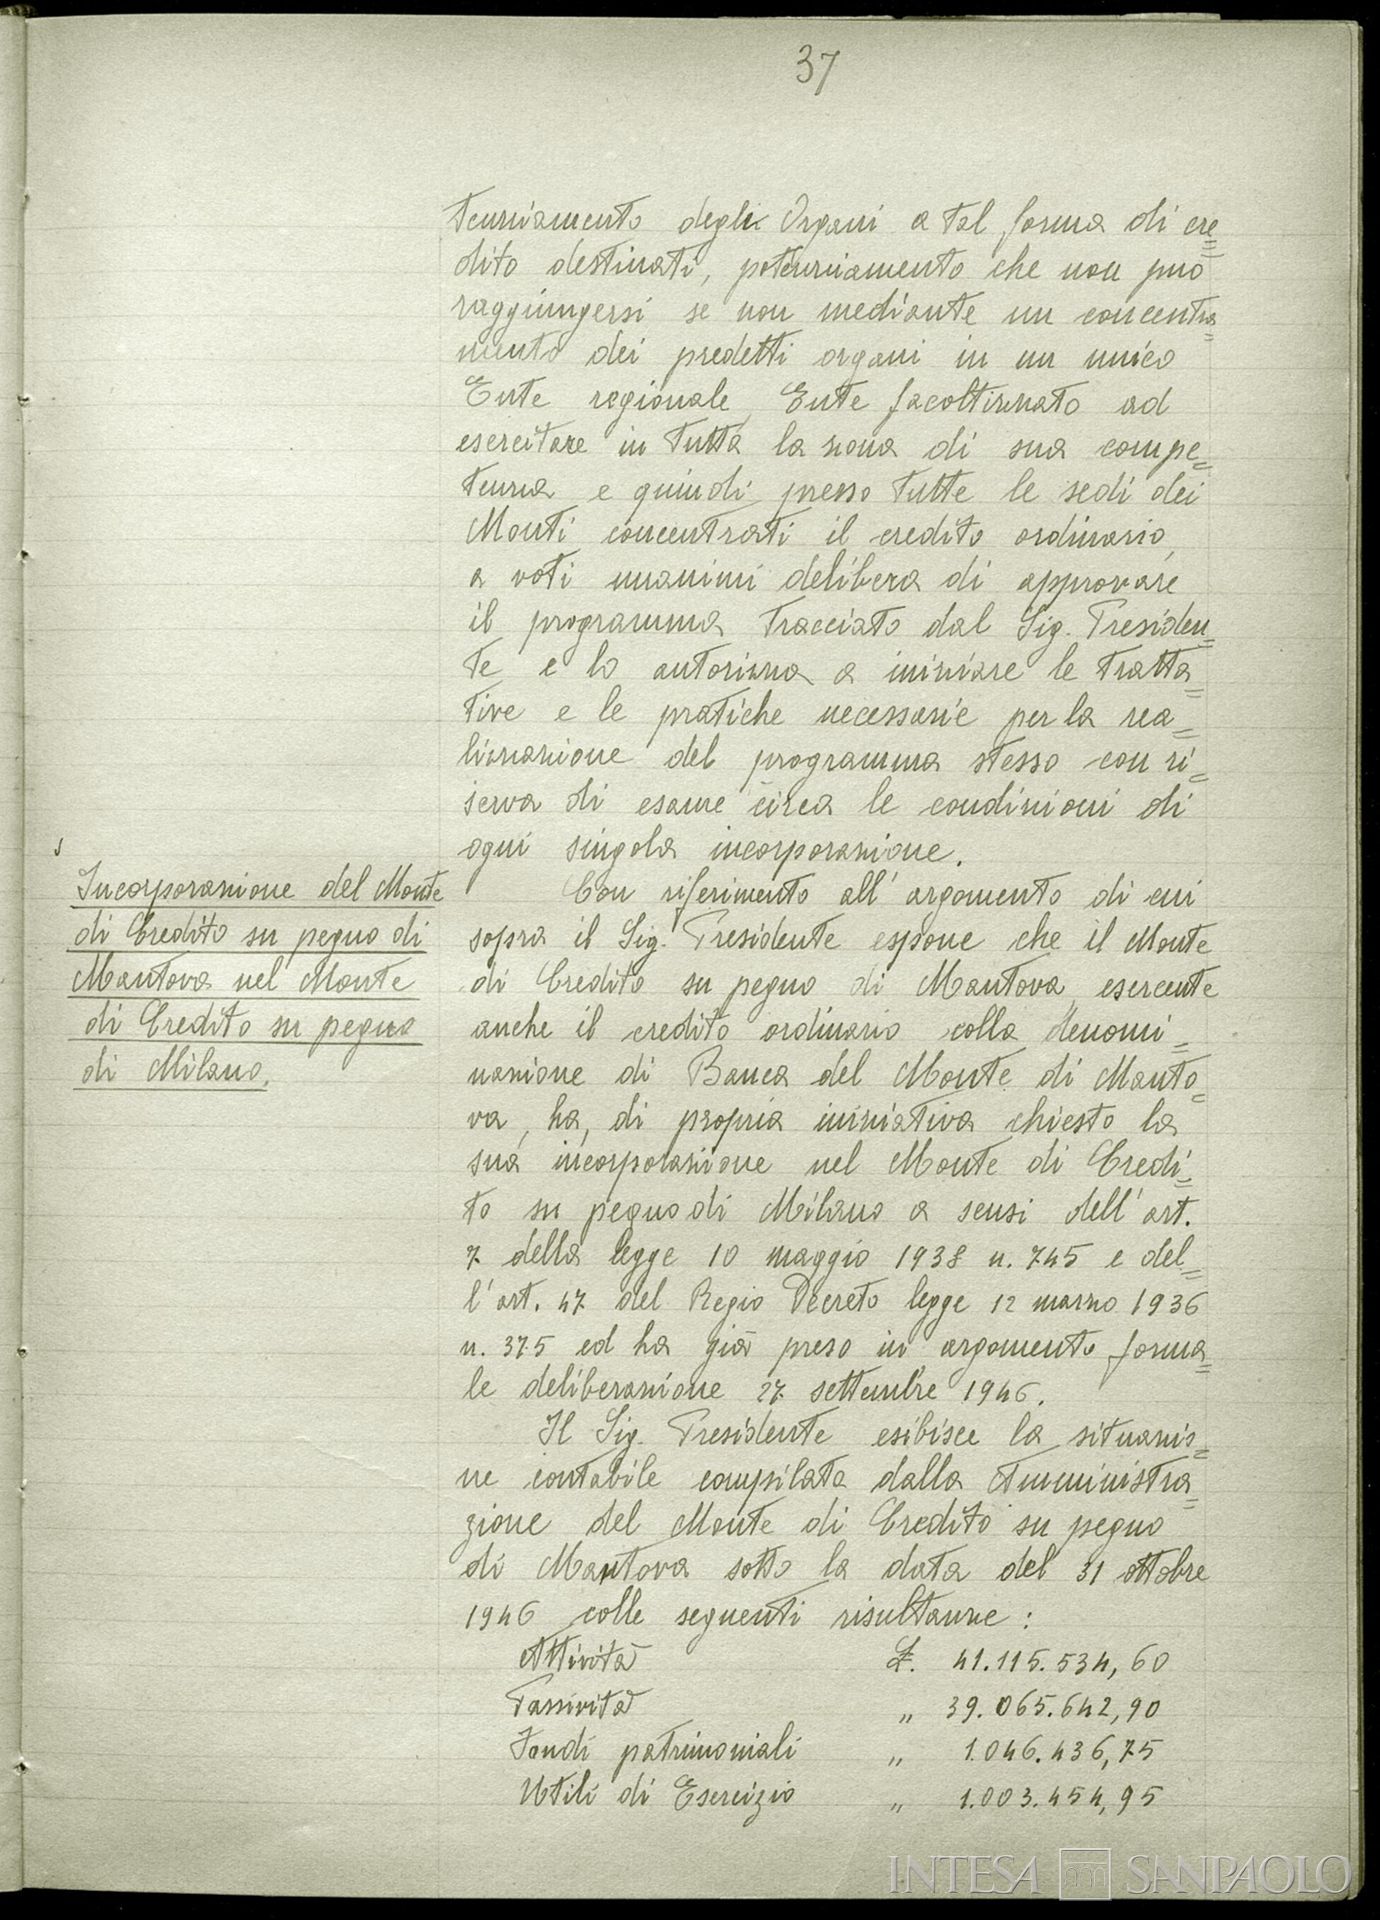 37
tenziamento degli Organi a tal forma di cre=
dito destinati, potenziamento che non può
raggiungersi se non mediante un concentra=
mento dei predetti organi in un unico
Ente regionale, Ente facoltizzato ad
esercitare in tutta la zona di sua compe=
tenza e quindi presso tutte le sedi dei
Monti concentrati il credito ordinario,
a voti unanimi delibera di approvare
il programma tracciato dal Sig. Presiden=
te e lo autorizza a iniziare le tratta=
tive e le pratiche necessarie per la rea=
lizzazione del programma stesso con ri=
serva di esame circa le condizioni di
ogni singola incorporazione.
Incorporazione del Monte
di Credito su pegno di
Mantova nel Monte
di Credito su pegno
di Milano.
Con riferimento all'argomento di cui
sopra il Sig. Presidente espone che il Monte
di Credito su pegno di Mantova, esercente
anche il credito ordinario colla denomi=
nazione di Banca del Monte di Manto=
va, ha, di propria iniziativa chiesto la
sua incorporazione nel Monte di Credi=
to su pegno di Milano a sensi dell'art.
7 della legge 10 maggio 1938 n. 745 e del=
l'art. 47 del Regio Decreto legge 12 marzo 1936
n. 375 ed ha già preso in argomento forma=
le deliberazione 27 settembre 1946.
Il Sig. Presidente esibisce la situazio=
ne contabile compilata dalla Amministra=
zione del Monte di Credito su pegno
di Mantova sotto la data del 31 ottobre
1946 colle seguenti risultanze:
Attività £. 41.115.534,60
Passività " 39.065.642,90
Fondi patrimoniali " 1.046.436,75
Utili di Esercizio " 1.003.454,95
INTESA SANPAOLO